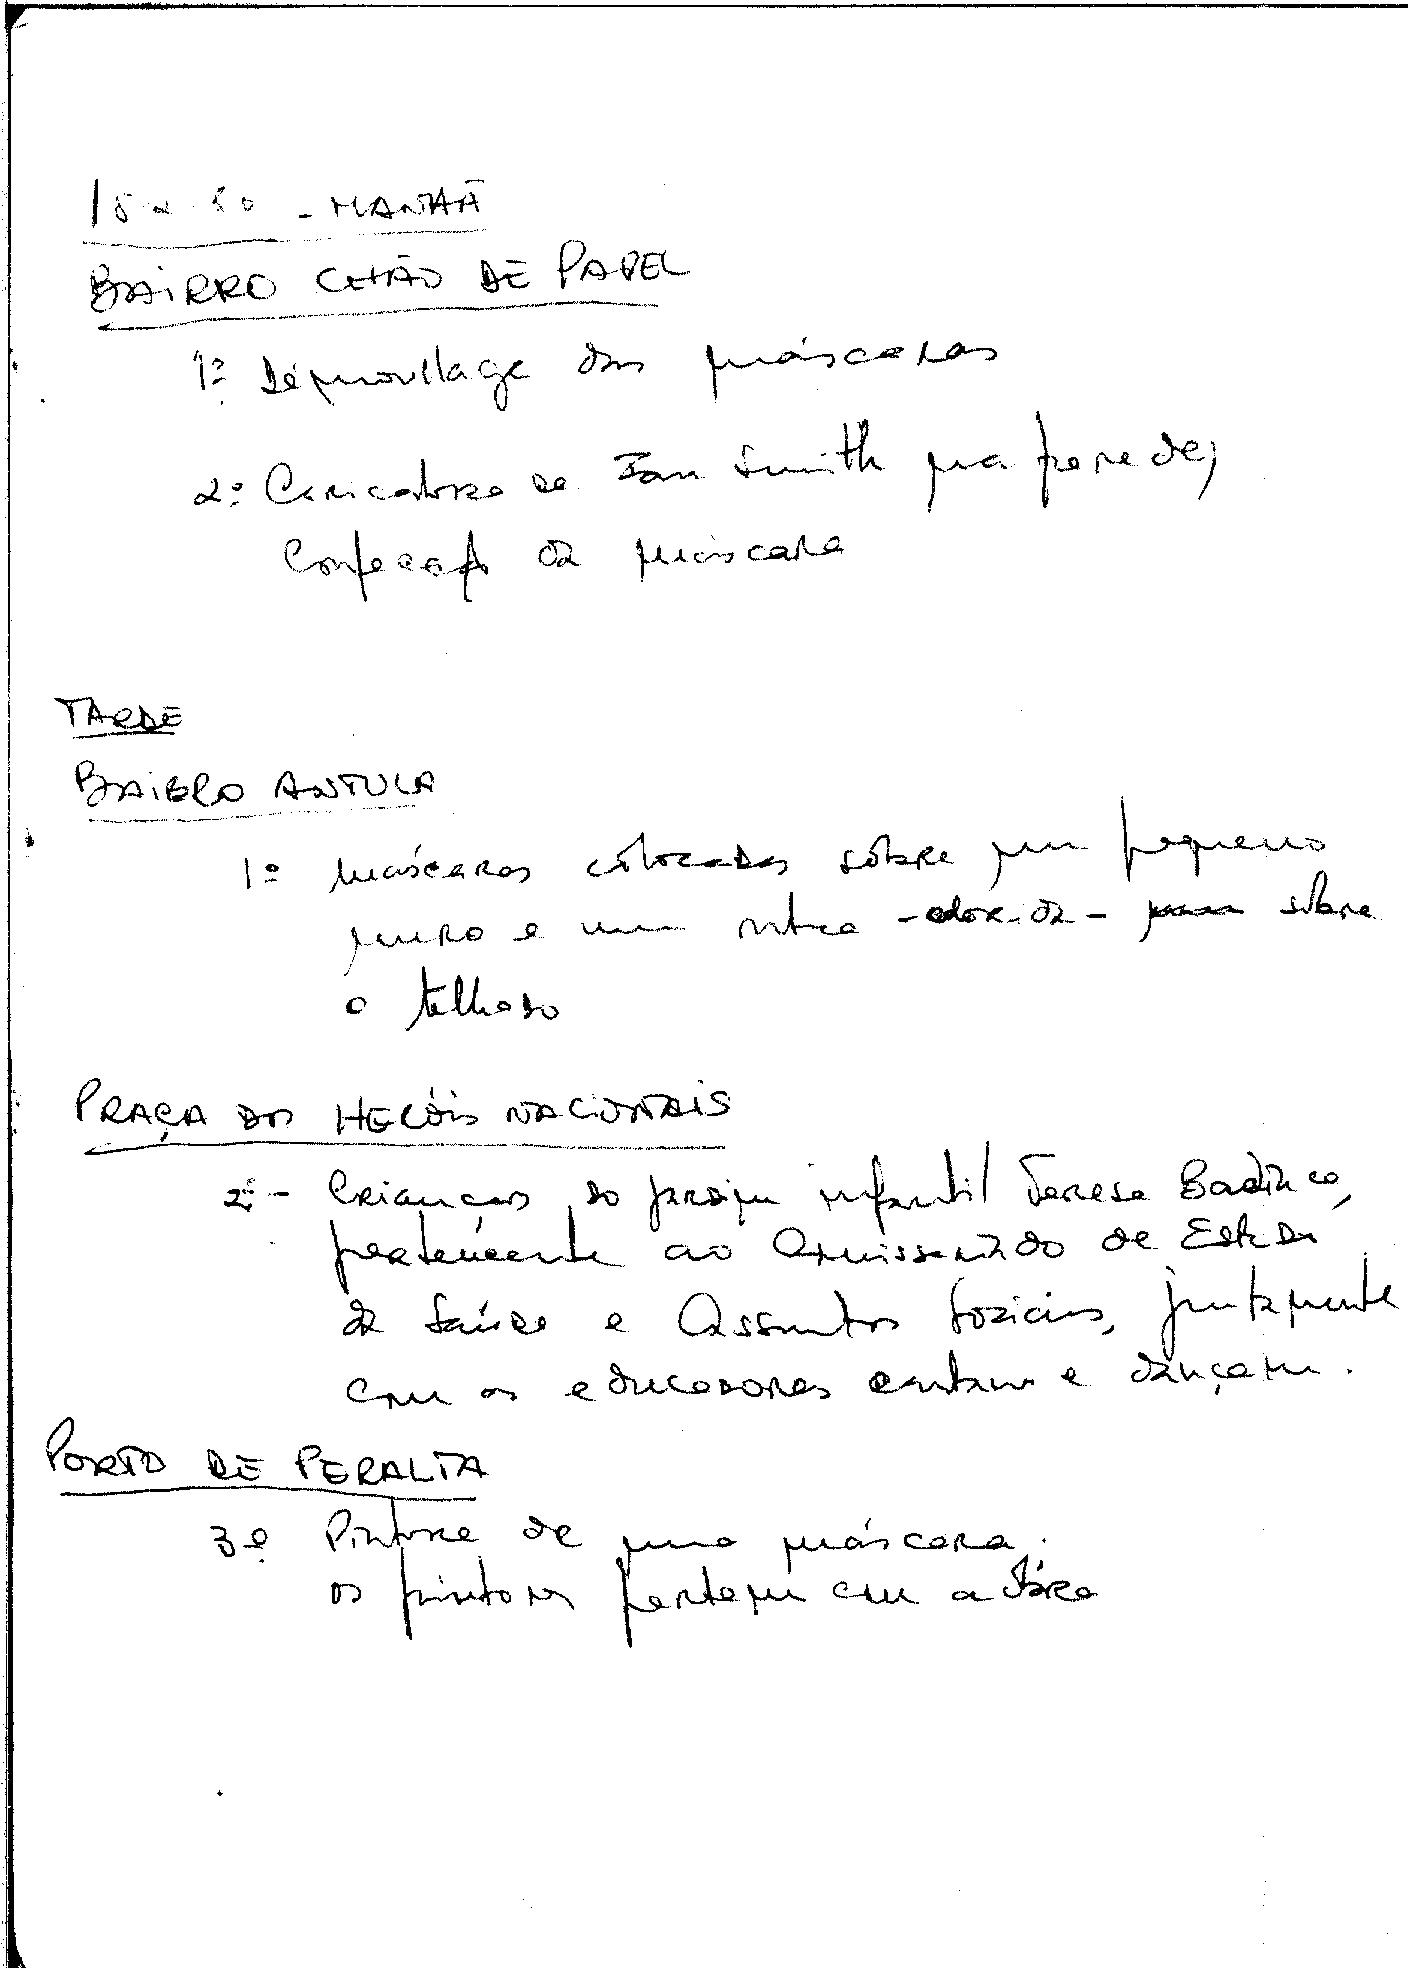 15-2-80 - MANHÃ
BAIRRO CHÃO DE PAPEL
1º Démoulage das máscaras
2º Caricatura de Ian Smith na parede,
Confecção da máscara
TARDE
BAIRRO ANTULA
1º máscaras colocadas sôbre um pequeno
muro e uma outra - - sôbre
o telhado
PRAÇA DOS HERÓIS NACIONAIS
2º - Crianças do jardim infantil Teresa Badinca,
pertencente ao Comissariado de Estado
da Saúde e Assuntos Sociais, juntamente
com os educadores cantam e dançam.
PORTO DE PERALTA
3º Pintura de uma máscara.
os pintores partem com a